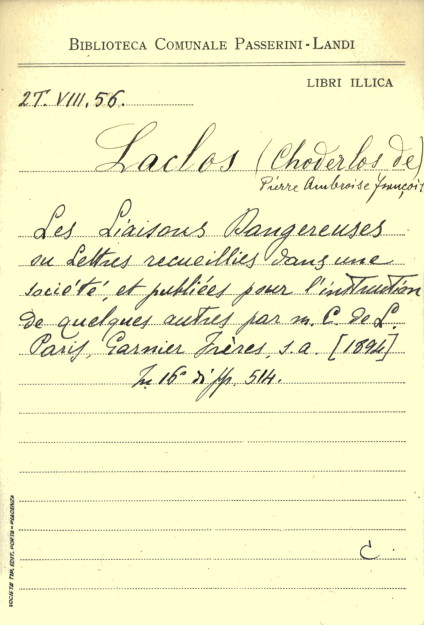 BIBLIOTECA COMUNALE PASSERINI-LANDI
LIBRI ILLICA
2T. VIII. 56.
Laclos (Choderlos de)
Pierre Ambroise François
Les Liaisons Dangereuses
ou Lettres recueillies dans une
société, et publiées pour l'instruction
de quelques autres par m. C. de L.
Paris, Garnier Frères, s.a. [1894]
In 16° di pp. 514.
C.
SOCIETÀ TIP. EDIT. PORTA - PIACENZA